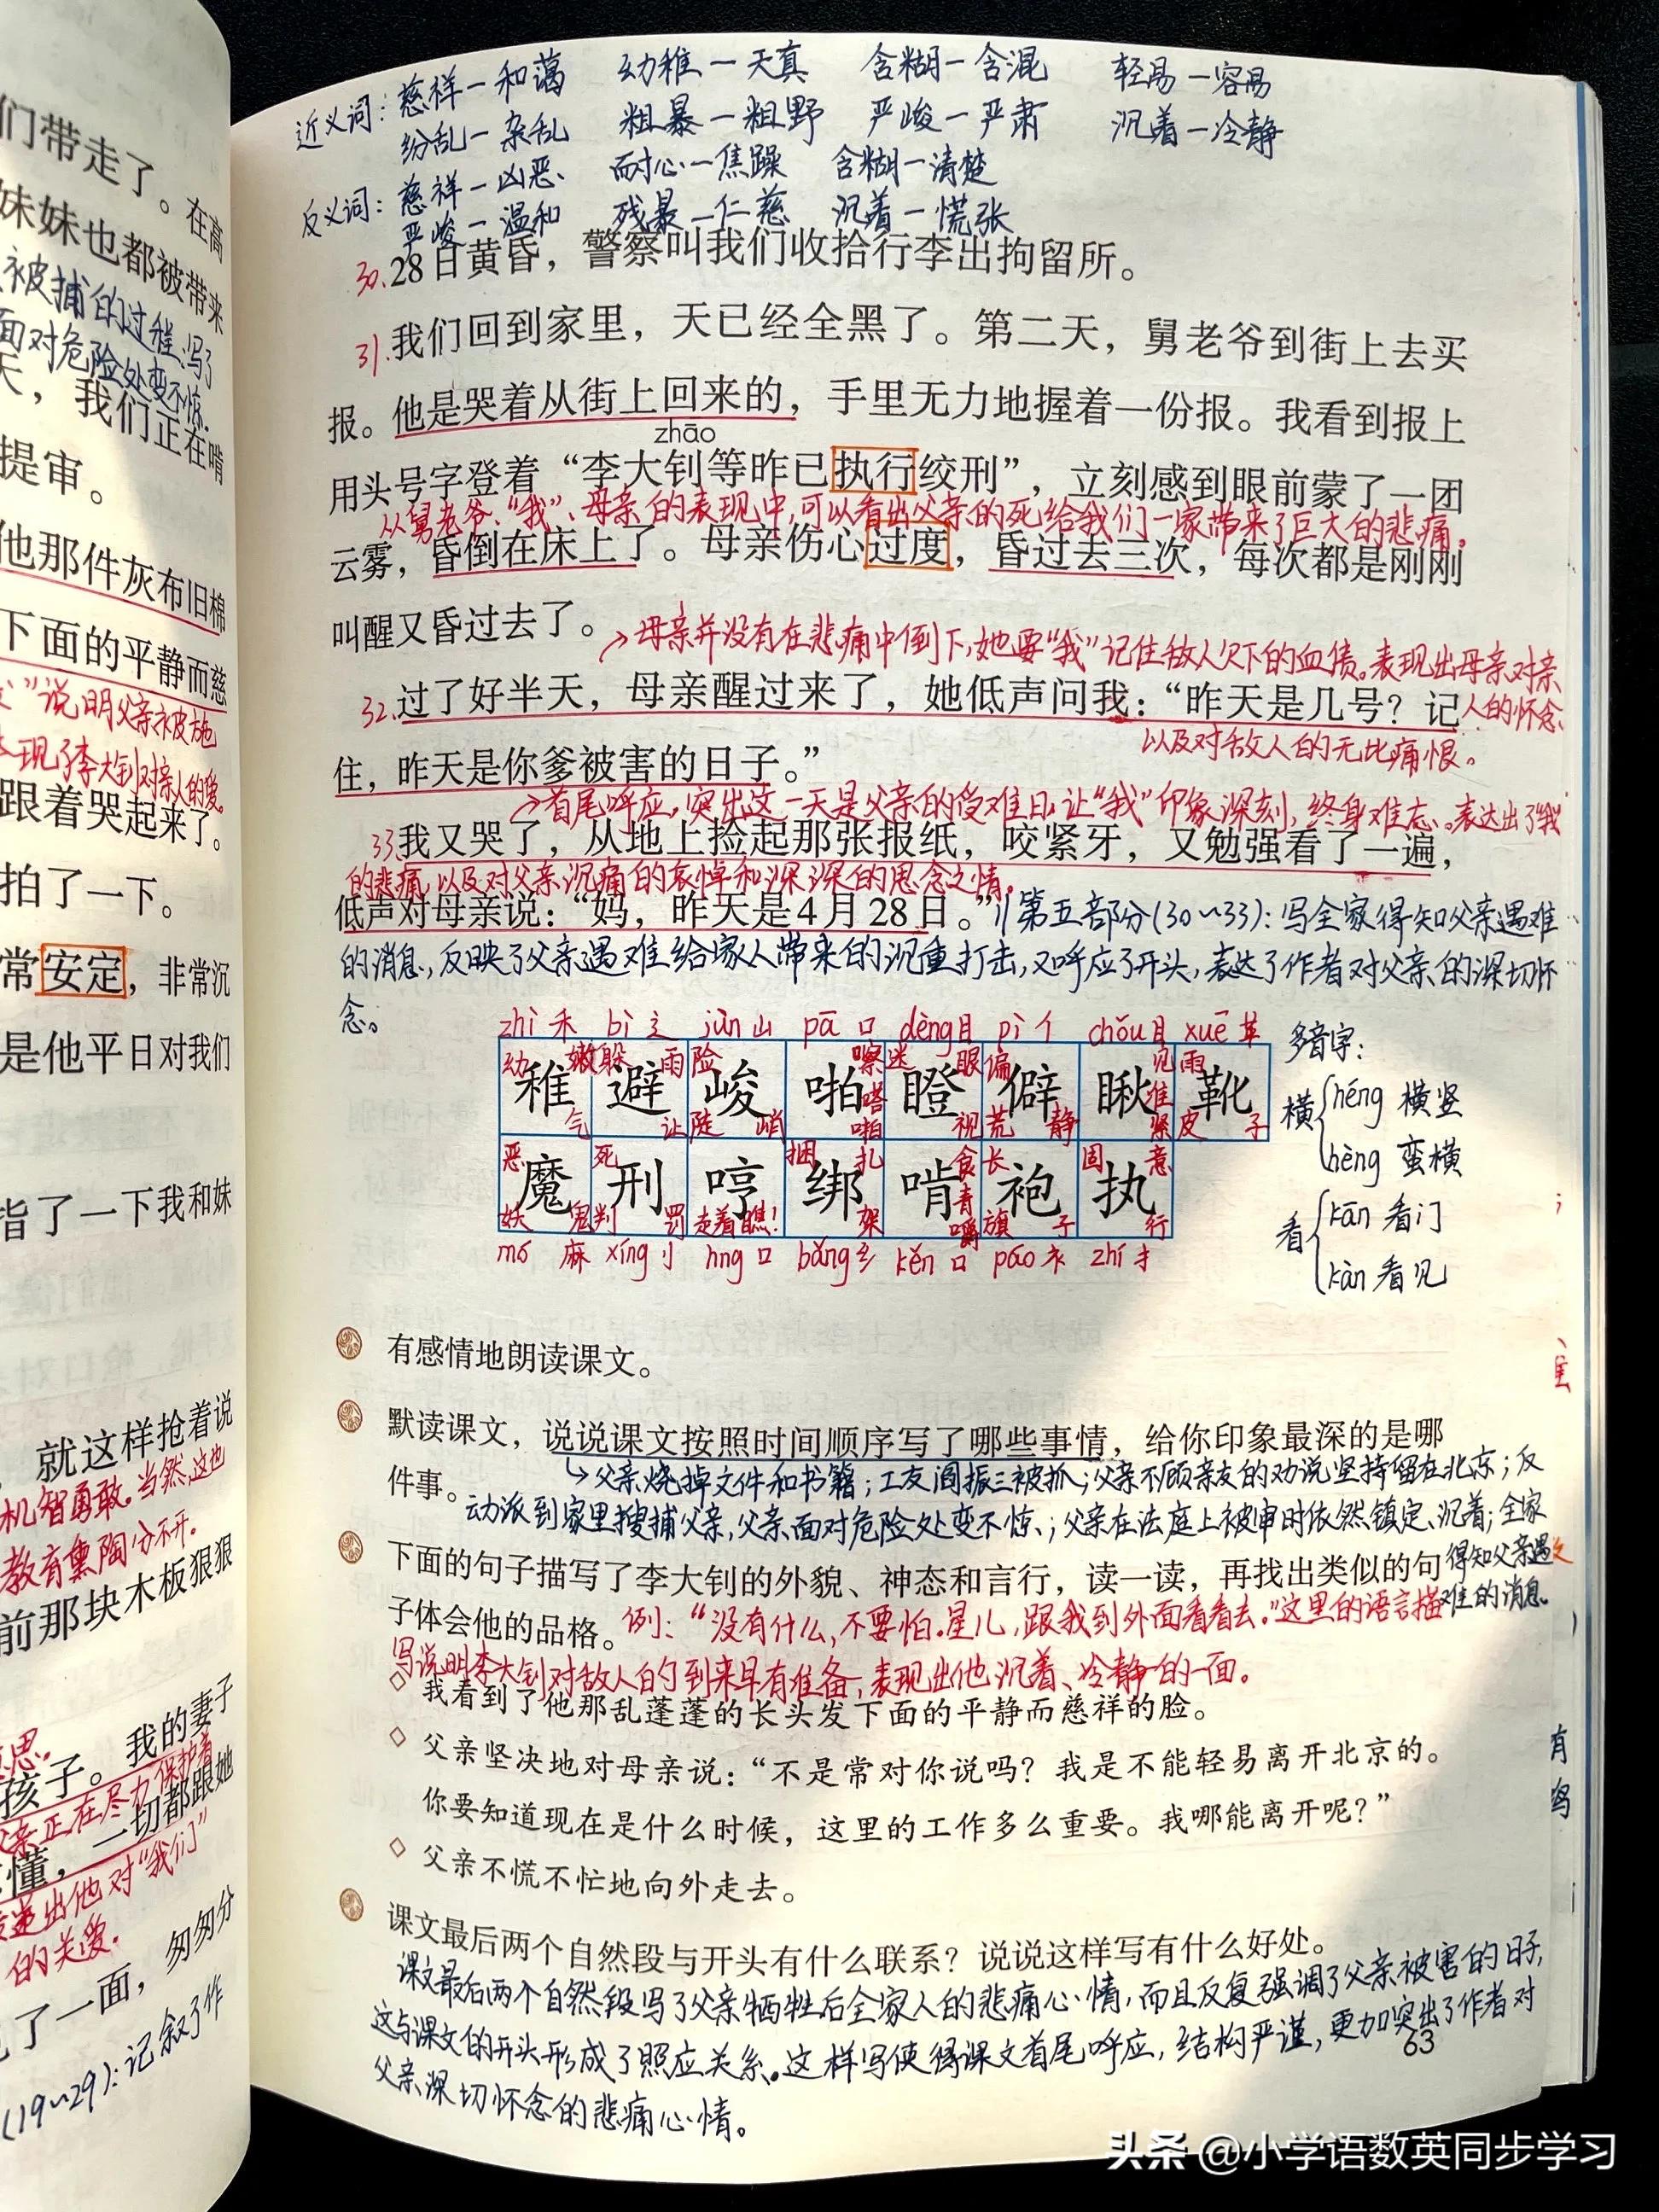 们带走了。在高
妹妹也都被带来
被捕的过程,写了
面对危险处变不惊.
天，我们正在啃
提审。
他那件灰布旧棉
下面的平静而慈
”说明父亲被施
现了李大钊对亲人的爱。
跟着哭起来了。
拍了一下。
常安定，非常沉
是他平日对我们
指了一下我和妹
就这样抢着说
机智勇敢。当然,这也
教育熏陶分不开.
前那块木板狠狠
思.
孩子。我的妻子
亲正在尽力保护着
懂，一切都跟她
达出他对“我们”
的关爱.
了一面，匆匆分
(19~29):记叙了作
近义词: 慈祥—和蔼 幼稚—天真 含糊—含混 轻易—容易
纷乱—杂乱 粗暴—粗野 严峻—严肃 沉着—冷静
反义词: 慈祥—凶恶、 耐心—焦躁 含糊—清楚
严峻—温和 残暴—仁慈 沉着—慌张
30.28日黄昏，警察叫我们收拾行李出拘留所。
31.我们回到家里，天已经全黑了。第二天，舅老爷到街上去买
报。他是哭着从街上回来的，手里无力地握着一份报。我看到报上
zhāo
用头号字登着“李大钊等昨已执行绞刑”，立刻感到眼前蒙了一团
从舅老爷、“我”、母亲的表现中,可以看出父亲的死给我们一家带来了巨大的悲痛。
云雾，昏倒在床上了。母亲伤心过度，昏过去三次，每次都是刚刚
叫醒又昏过去了。
母亲并没有在悲痛中倒下,她要“我”记住敌人欠下的血债。表现出母亲对亲
32.过了好半天，母亲醒过来了，她低声问我：“昨天是几号？记
人的怀念、
以及对敌人的无比痛恨。
住，昨天是你爹被害的日子。”
首尾呼应,突出这一天是父亲的受难日,让“我”印象深刻,终身难忘。表达出了“我”
33.我又哭了，从地上捡起那张报纸，咬紧牙，又勉强看了一遍，
的悲痛,以及对父亲沉痛的哀悼和深深的思念之情。
低声对母亲说：“妈，昨天是4月28日。”
//第五部分(30~33):写全家得知父亲遇难
的消息,反映了父亲遇难给家人带来的沉重打击,又呼应了开头,表达了作者对父亲的深切怀
念。
zhì 禾 bì 辶 jùn 山 pā 口 dèng 目 pì 亻 chǒu 目 xuē 革
稚 避 峻 啪 瞪 僻 瞅 靴
幼 嫩 躲 雨 险 嚓 迷 眼 偏 见 雨
气 让 陡 峭 嗒 啪 视 荒 静 准 紧 皮 子
魔 刑 哼 绑 啃 袍 执
恶 死 捆 扎 食 长 固 意
妖 鬼 判 罚 走着瞧! 架 青 嚼 旗 子 行
mó 麻 xíng 刂 hng 口 bǎng 纟 kěn 口 páo 衤 zhí 扌
多音字:
横 héng 横竖
hèng 蛮横
看 kān 看门
kàn 看见
有感情地朗读课文。
默读课文，说说课文按照时间顺序写了哪些事情，给你印象最深的是哪
件事。
父亲烧掉文件和书籍;工友阎振三被抓;父亲不顾亲友的劝说坚持留在北京;反
动派到家里搜捕父亲,父亲面对危险处变不惊、;父亲在法庭上被审时依然镇定、沉着;全家
得知父亲遇
难的消息。
下面的句子描写了李大钊的外貌、神态和言行，读一读，再找出类似的句
子体会他的品格。
例:“没有什么,不要怕.星儿,跟我到外面看看去.”这里的语言描
写说明李大钊对敌人的到来早有准备,表现出他沉着、冷静的一面。
我看到了他那乱蓬蓬的长头发下面的平静而慈祥的脸。
父亲坚决地对母亲说：“不是常对你说吗？我是不能轻易离开北京的。
你要知道现在是什么时候，这里的工作多么重要。我哪能离开呢？”
父亲不慌不忙地向外走去。
课文最后两个自然段与开头有什么联系？说说这样写有什么好处。
课文最后两个自然段写了父亲牺牲后全家人的悲痛心情,而且反复强调了父亲被害的日子,
这与课文的开头形成了照应关系。这样写使得课文首尾呼应,结构严谨,更加突出了作者对
父亲深切怀念的悲痛心情。
63
有
头条 @小学语数英同步学习